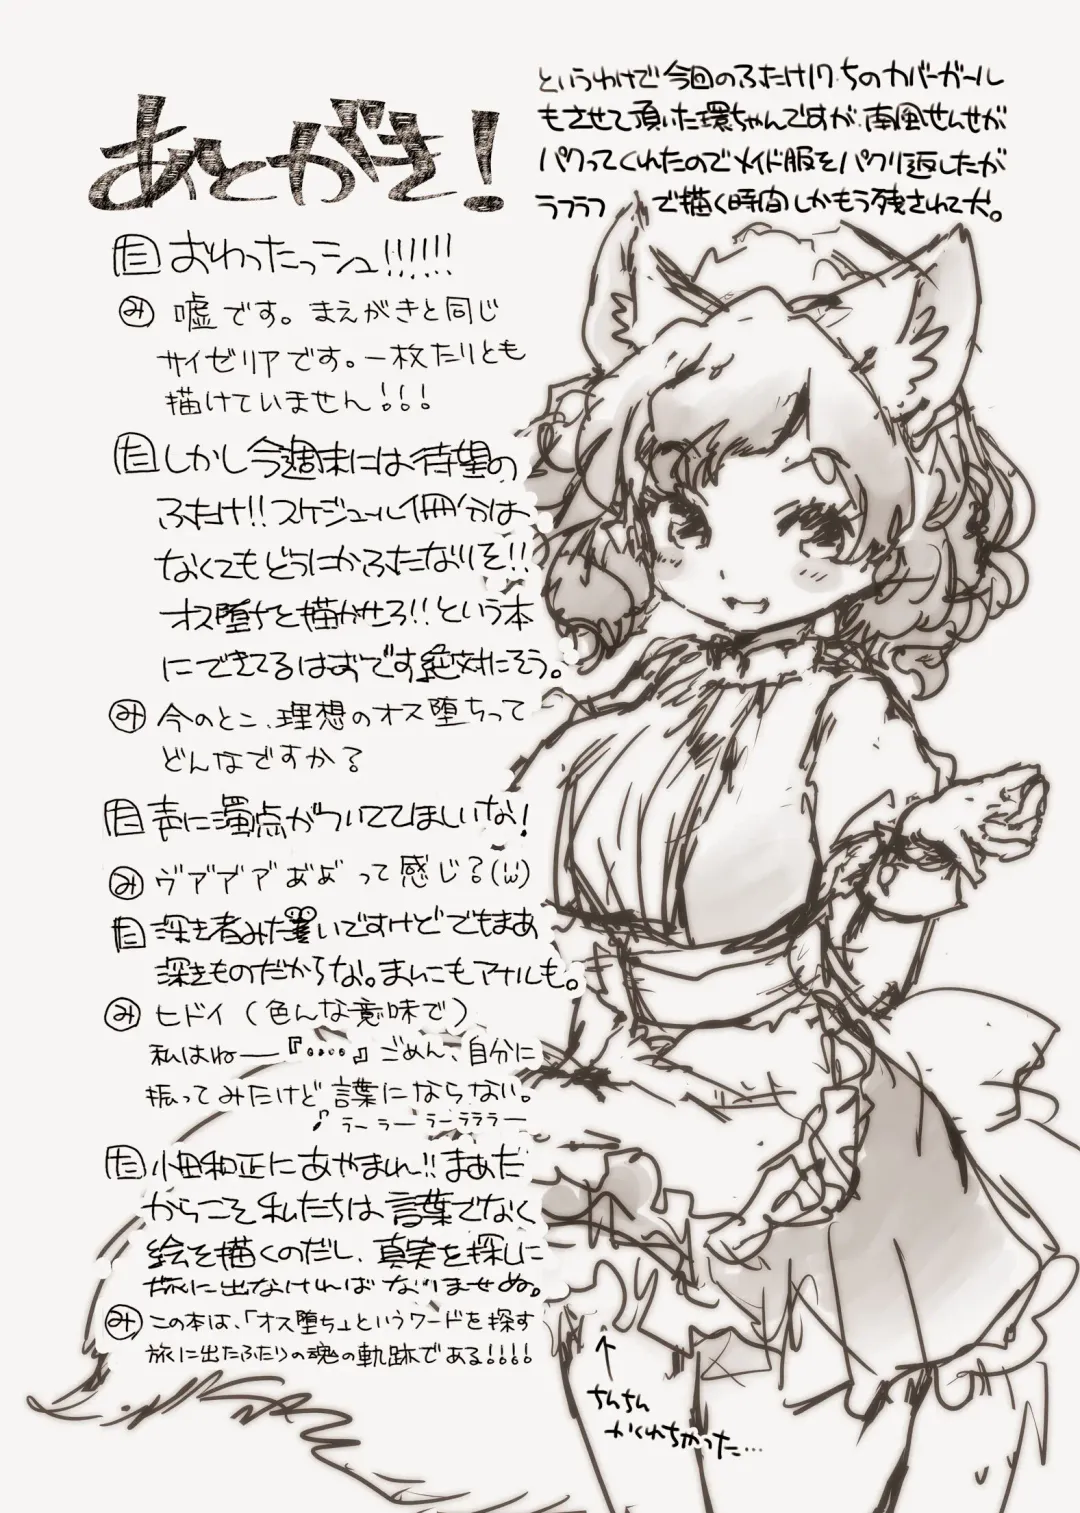 あとがき!
というわけで今回のふたけ17.5のカバーガール
もさせて頂いた環ちゃんですが、南風せんせが
パクってくれたのでメイド服をパクり返したが
ラフラフ で描く時間しかもう残されて犬。
た おわったっシュ!!!!!!
み 嘘です。まえがきと同じ
サイゼリアです。一枚たりとも
描けていません!!!
た しかし今週末には待望の
ふたけ!!スケジュール1冊分は
なくてもどうにかふたなりを!!
オス堕ちを描かせろ!!という本
にできてるはずです絶対にそう。
み 今のとこ、理想のオス堕ちって
どんなですか?
た 声に濁点がついててほしいな!
み ヴァ゛ア゛ア゛お゛お゛って感じ?(´ω`)
た 深き者みた いですけどでもまあ
深きものだからな。まんこもアナルも。
み ヒドイ(色んな意味で)
私はねー『・・・・』ごめん、自分に
振ってみたけど言葉にならない。
『ラーラーラーラララー
た 小田和正にあやまれ!!まあだ
からこそ私たちは言葉でなく
絵を描くのだし、真実を探しに
旅に出なければなりませぬ。
み この本は、「オス堕ち」というワードを探す
旅に出たふたりの魂の軌跡である!!!!
↑
ちんちん
かくれちかった…